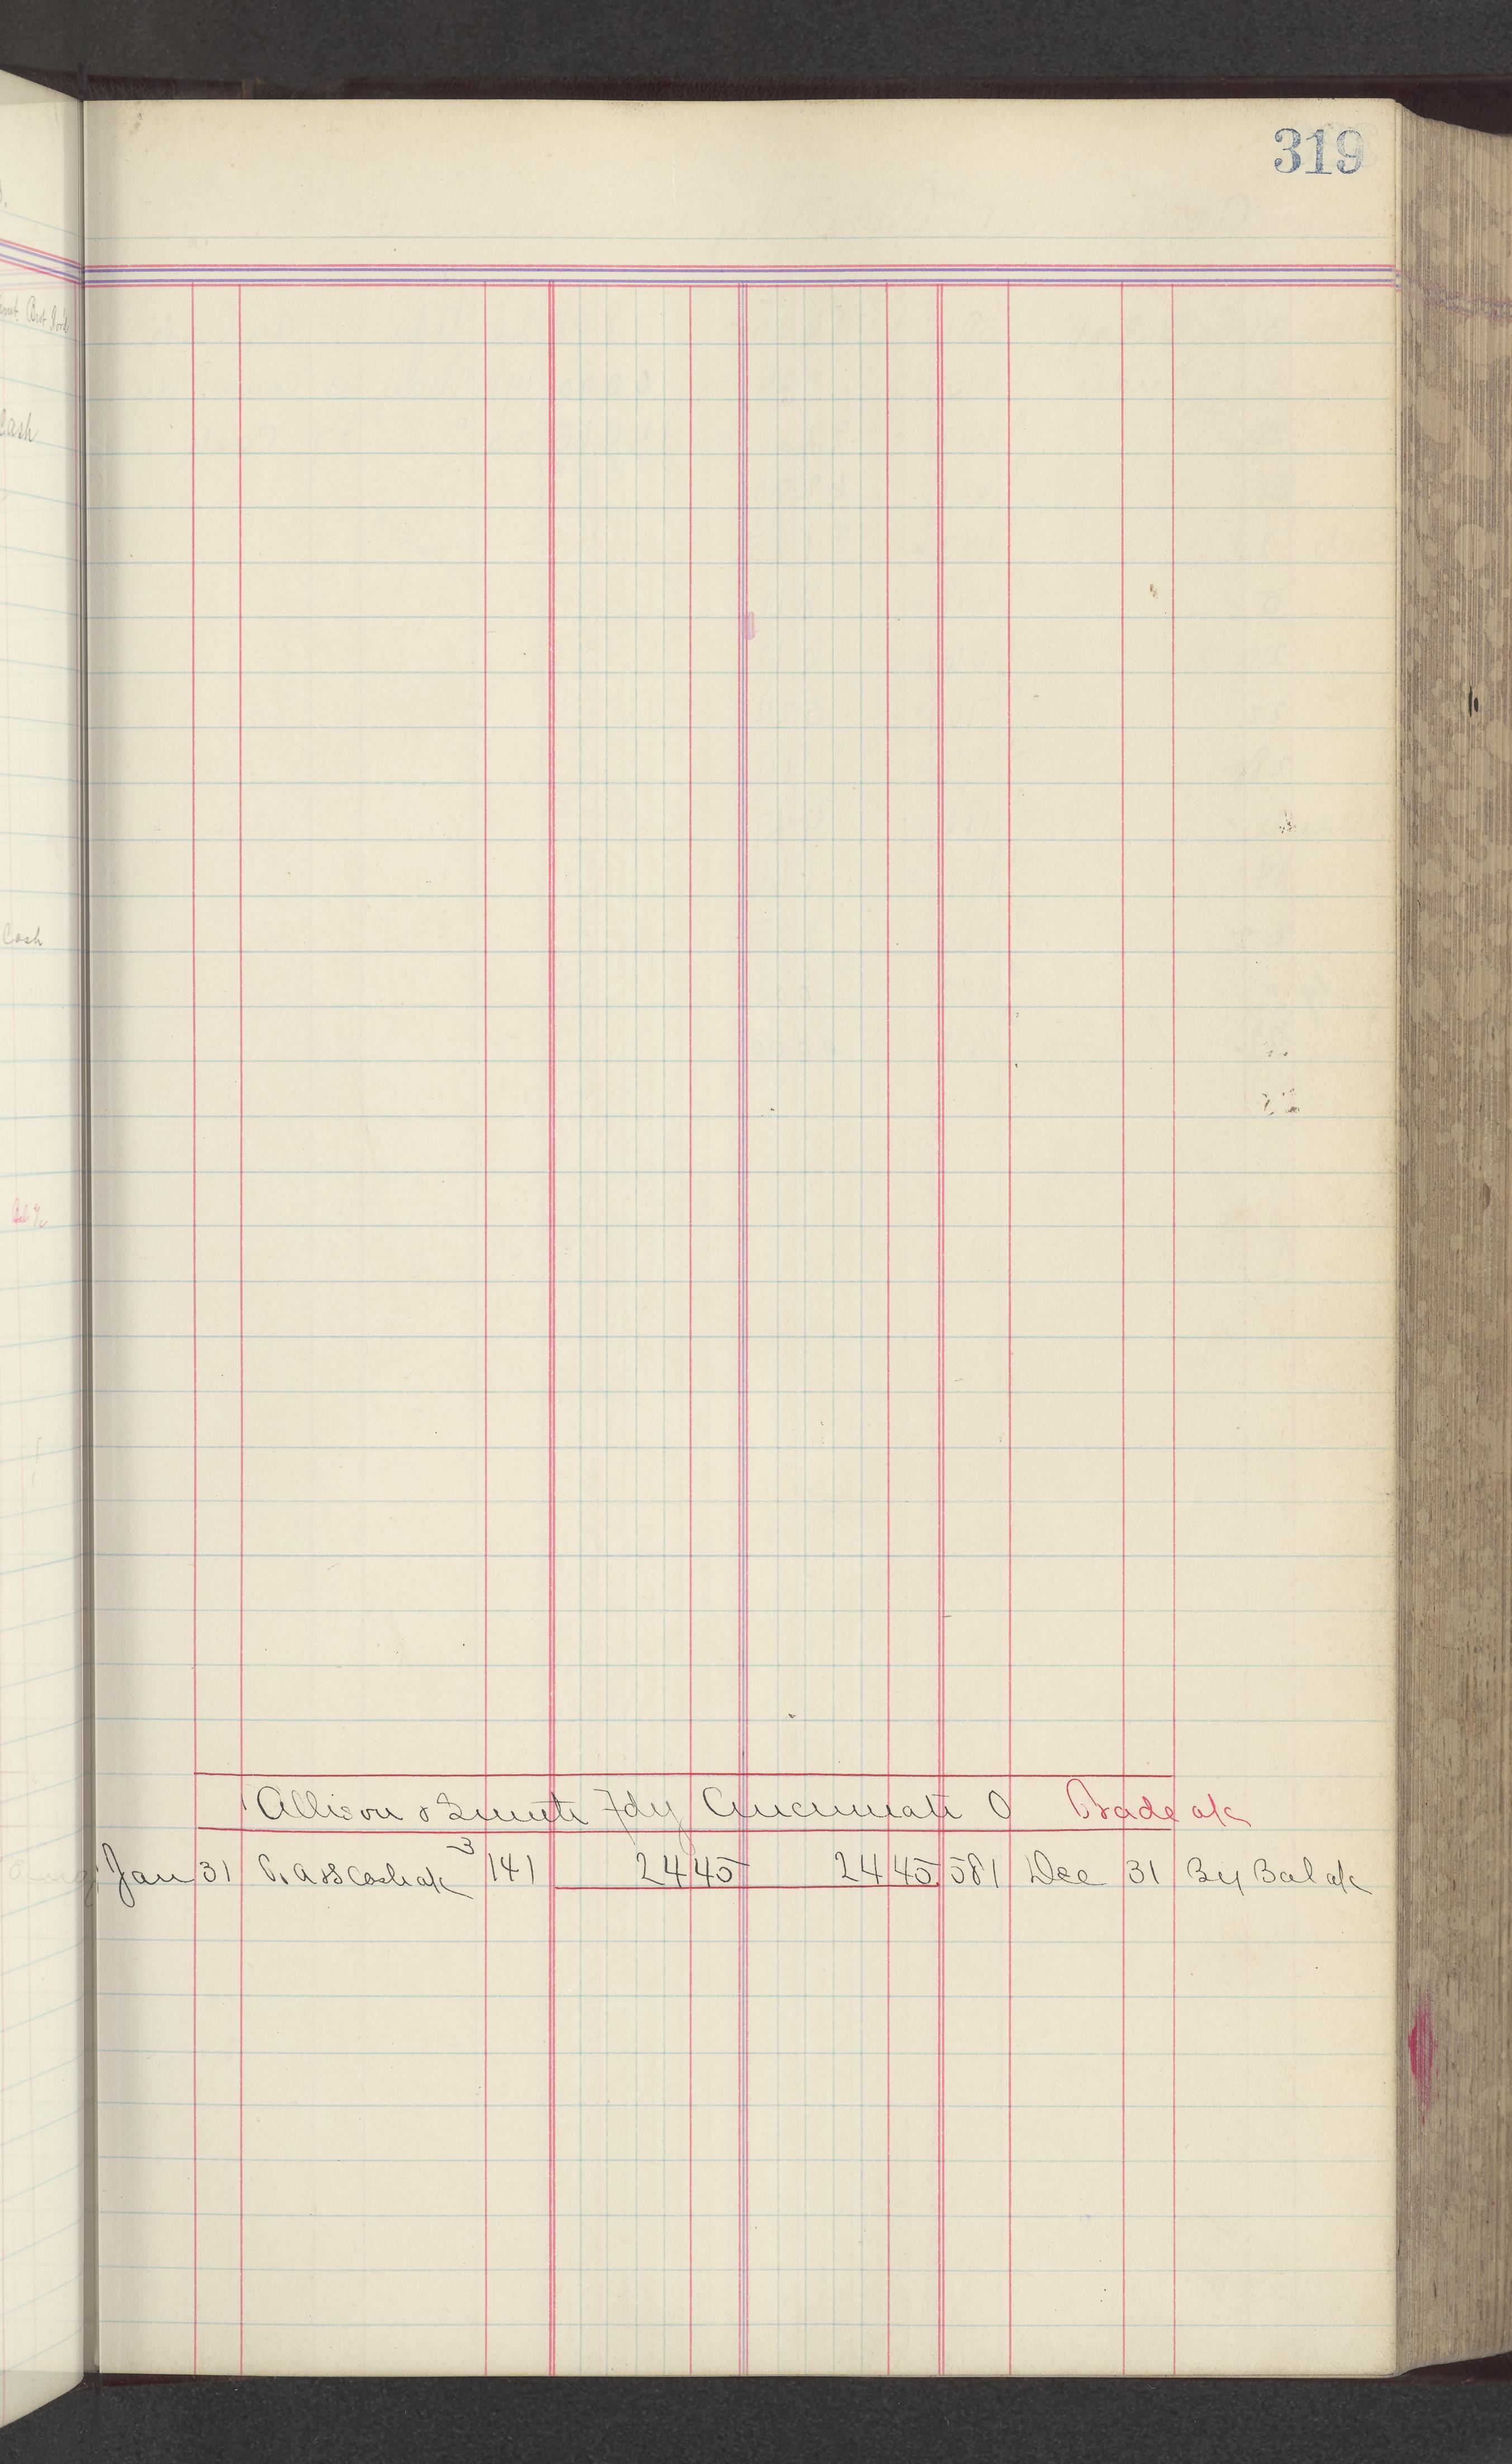 319
Cash
Cash
Allison & Fdy Cincinnati O Trade a/c
Jan 31 Cash a/c 3 141 24 45 24 45 581 Dec 31 By Bal a/c